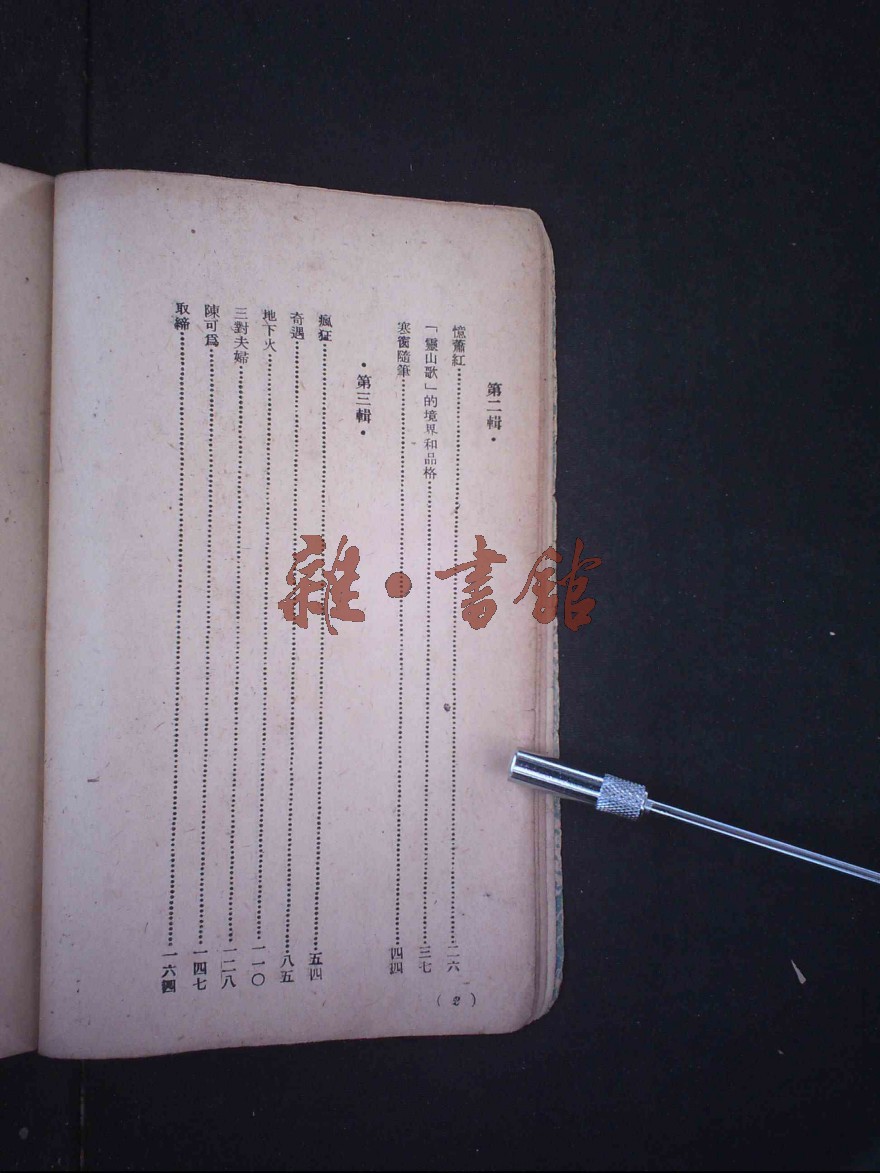 第二輯•
憶蕭紅……二六
「靈山歌」的境界和品格……三七
寒窗隨筆……四四
•第三輯•
瘋狂……五四
奇遇……八五
地下火……一一〇
三對夫婦……一二八
陳可為……一四七
取締……一六四
(2)
雜•書館